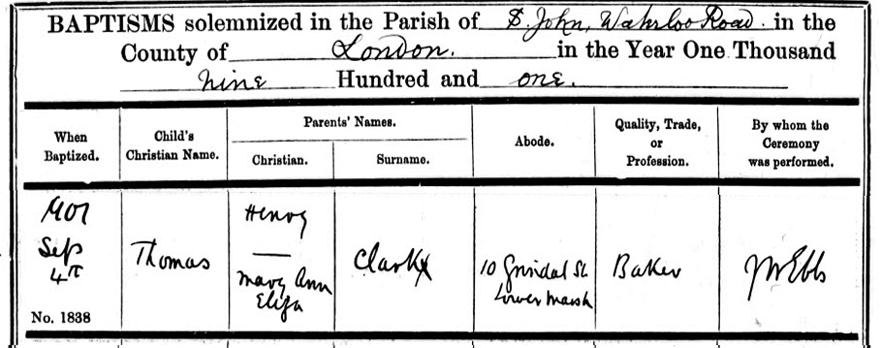 BAPTISMS solemnized in the Parish of S. John, Waterloo Road. in the
County of London. in the Year One Thousand
Nine Hundred and one.
When Baptized.
Child's Christian Name.
Parents' Names.
Christian.
Surname.
Abode.
Quality, Trade, or Profession.
By whom the Ceremony was performed.
1901
Sep
4th
No. 1838
Thomas
Henry
—
Mary Ann
Eliza
Clark
10 Grindal St
Lower Marsh
Baker